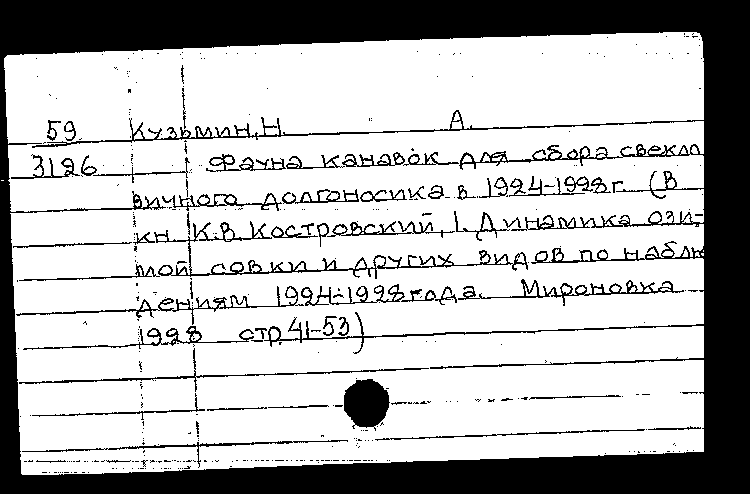 59 Кузьмин, Н. А.
3126 Фауна канавок для сбора свекло
вичного долгоносика в 1924-1928 г. (В
кн. К.В. Костровский, 1. Динамика ози-
мой совки и других видов по наблю
дениям 1924-1928 года. Мироновка
1928 стр. 41-53)